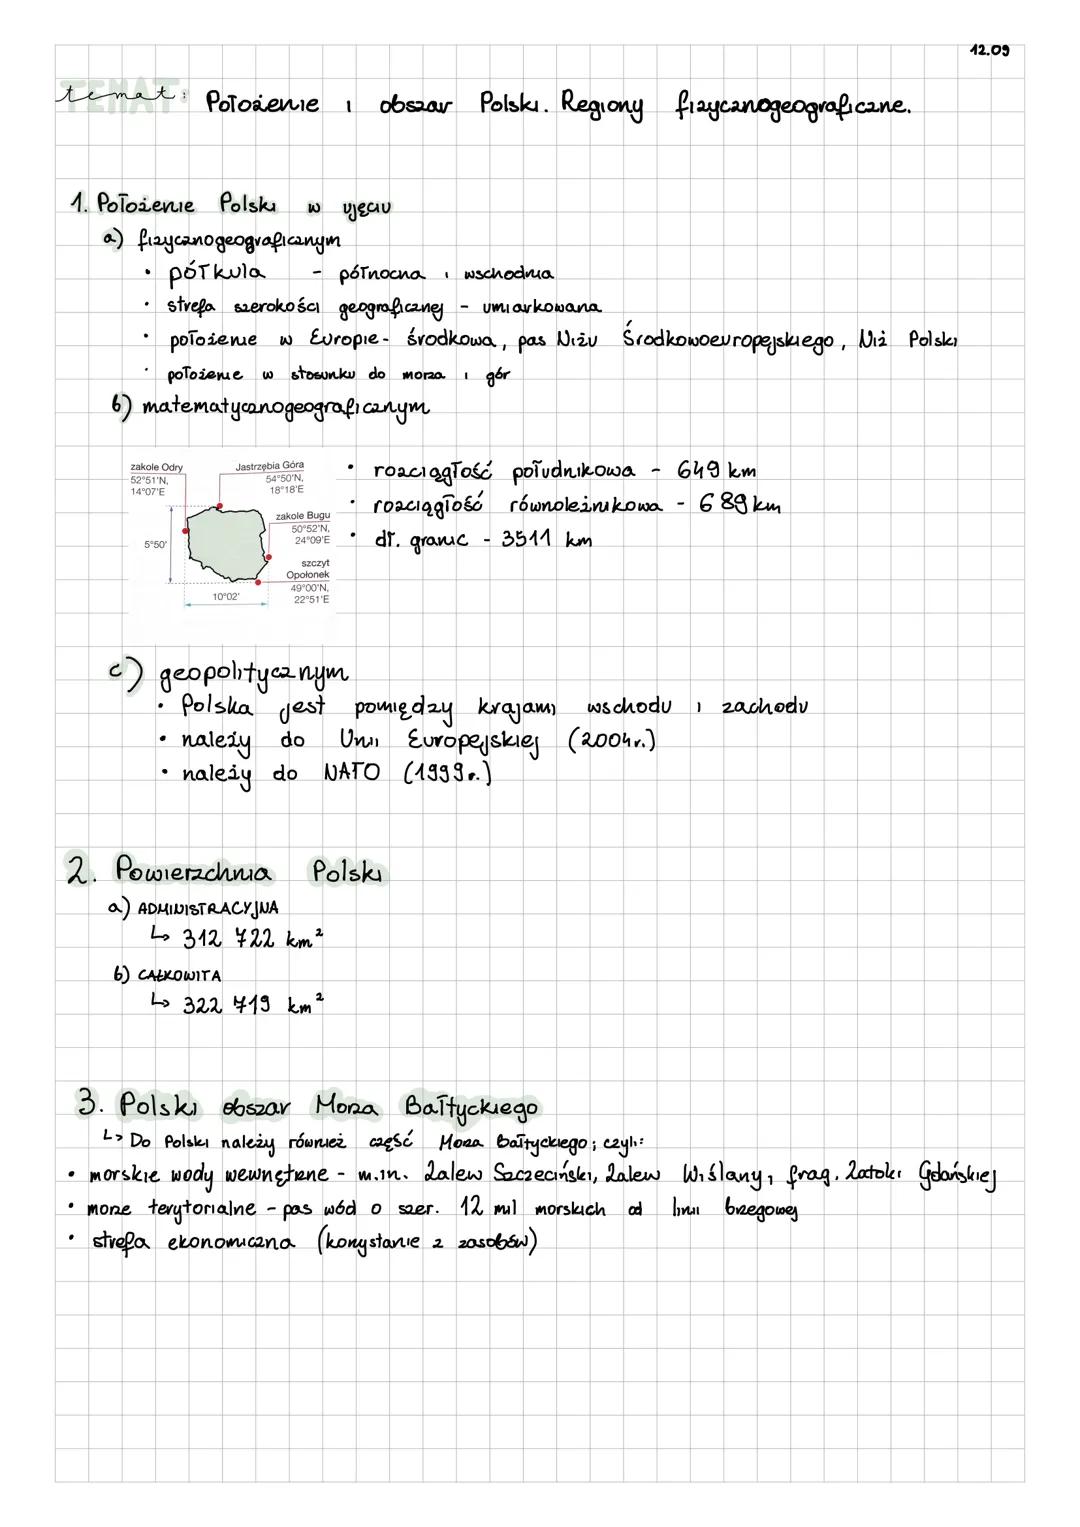 12.09
temat: Położenie i obszar Polski. Regiony fizycznogeograficzne.
1. Położenie Polski w ujęciu
a) fizycznogeograficznym
• półkula - północna i wschodnia
• strefa szerokości geograficznej - umiarkowana
• położenie w Europie - środkowa, pas Niżu Środkowoeuropejskiego, Niż Polski
• położenie w stosunku do morza i gór
b) matematycznogeograficznym
zakole Odry
52°51'N,
14°07'E
Jastrzębia Góra
54°50'N,
18°18'E
zakole Bugu
50°52'N,
24°09'E
5°50'
szczyt
Opołonek
49°00'N,
22°51'E
10°02'
• rozciągłość południkowa - 649 km
• rozciągłość równoleżnikowa - 689 km
• dł. granic - 3511 km
c) geopolitycznym
• Polska jest pomiędzy krajami wschodu i zachodu
• należy do Unii Europejskiej (2004r.)
• należy do NATO (1999r.)
2. Powierzchnia Polski
a) ADMINISTRACYJNA
↳ 312 722 km²
b) CAŁKOWITA
↳ 322 719 km²
3. Polski obszar Morza Bałtyckiego
↳ Do Polski należy również część Morza Bałtyckiego; czyli:
• morskie wody wewnętrzne - m.in. Zalew Szczeciński, Zalew Wiślany, frag. Zatoki Gdańskiej
• morze terytorialne - pas wód o szer. 12 mil morskich od linii brzegowej
• strefa ekonomiczna (korzystanie z zasobów)